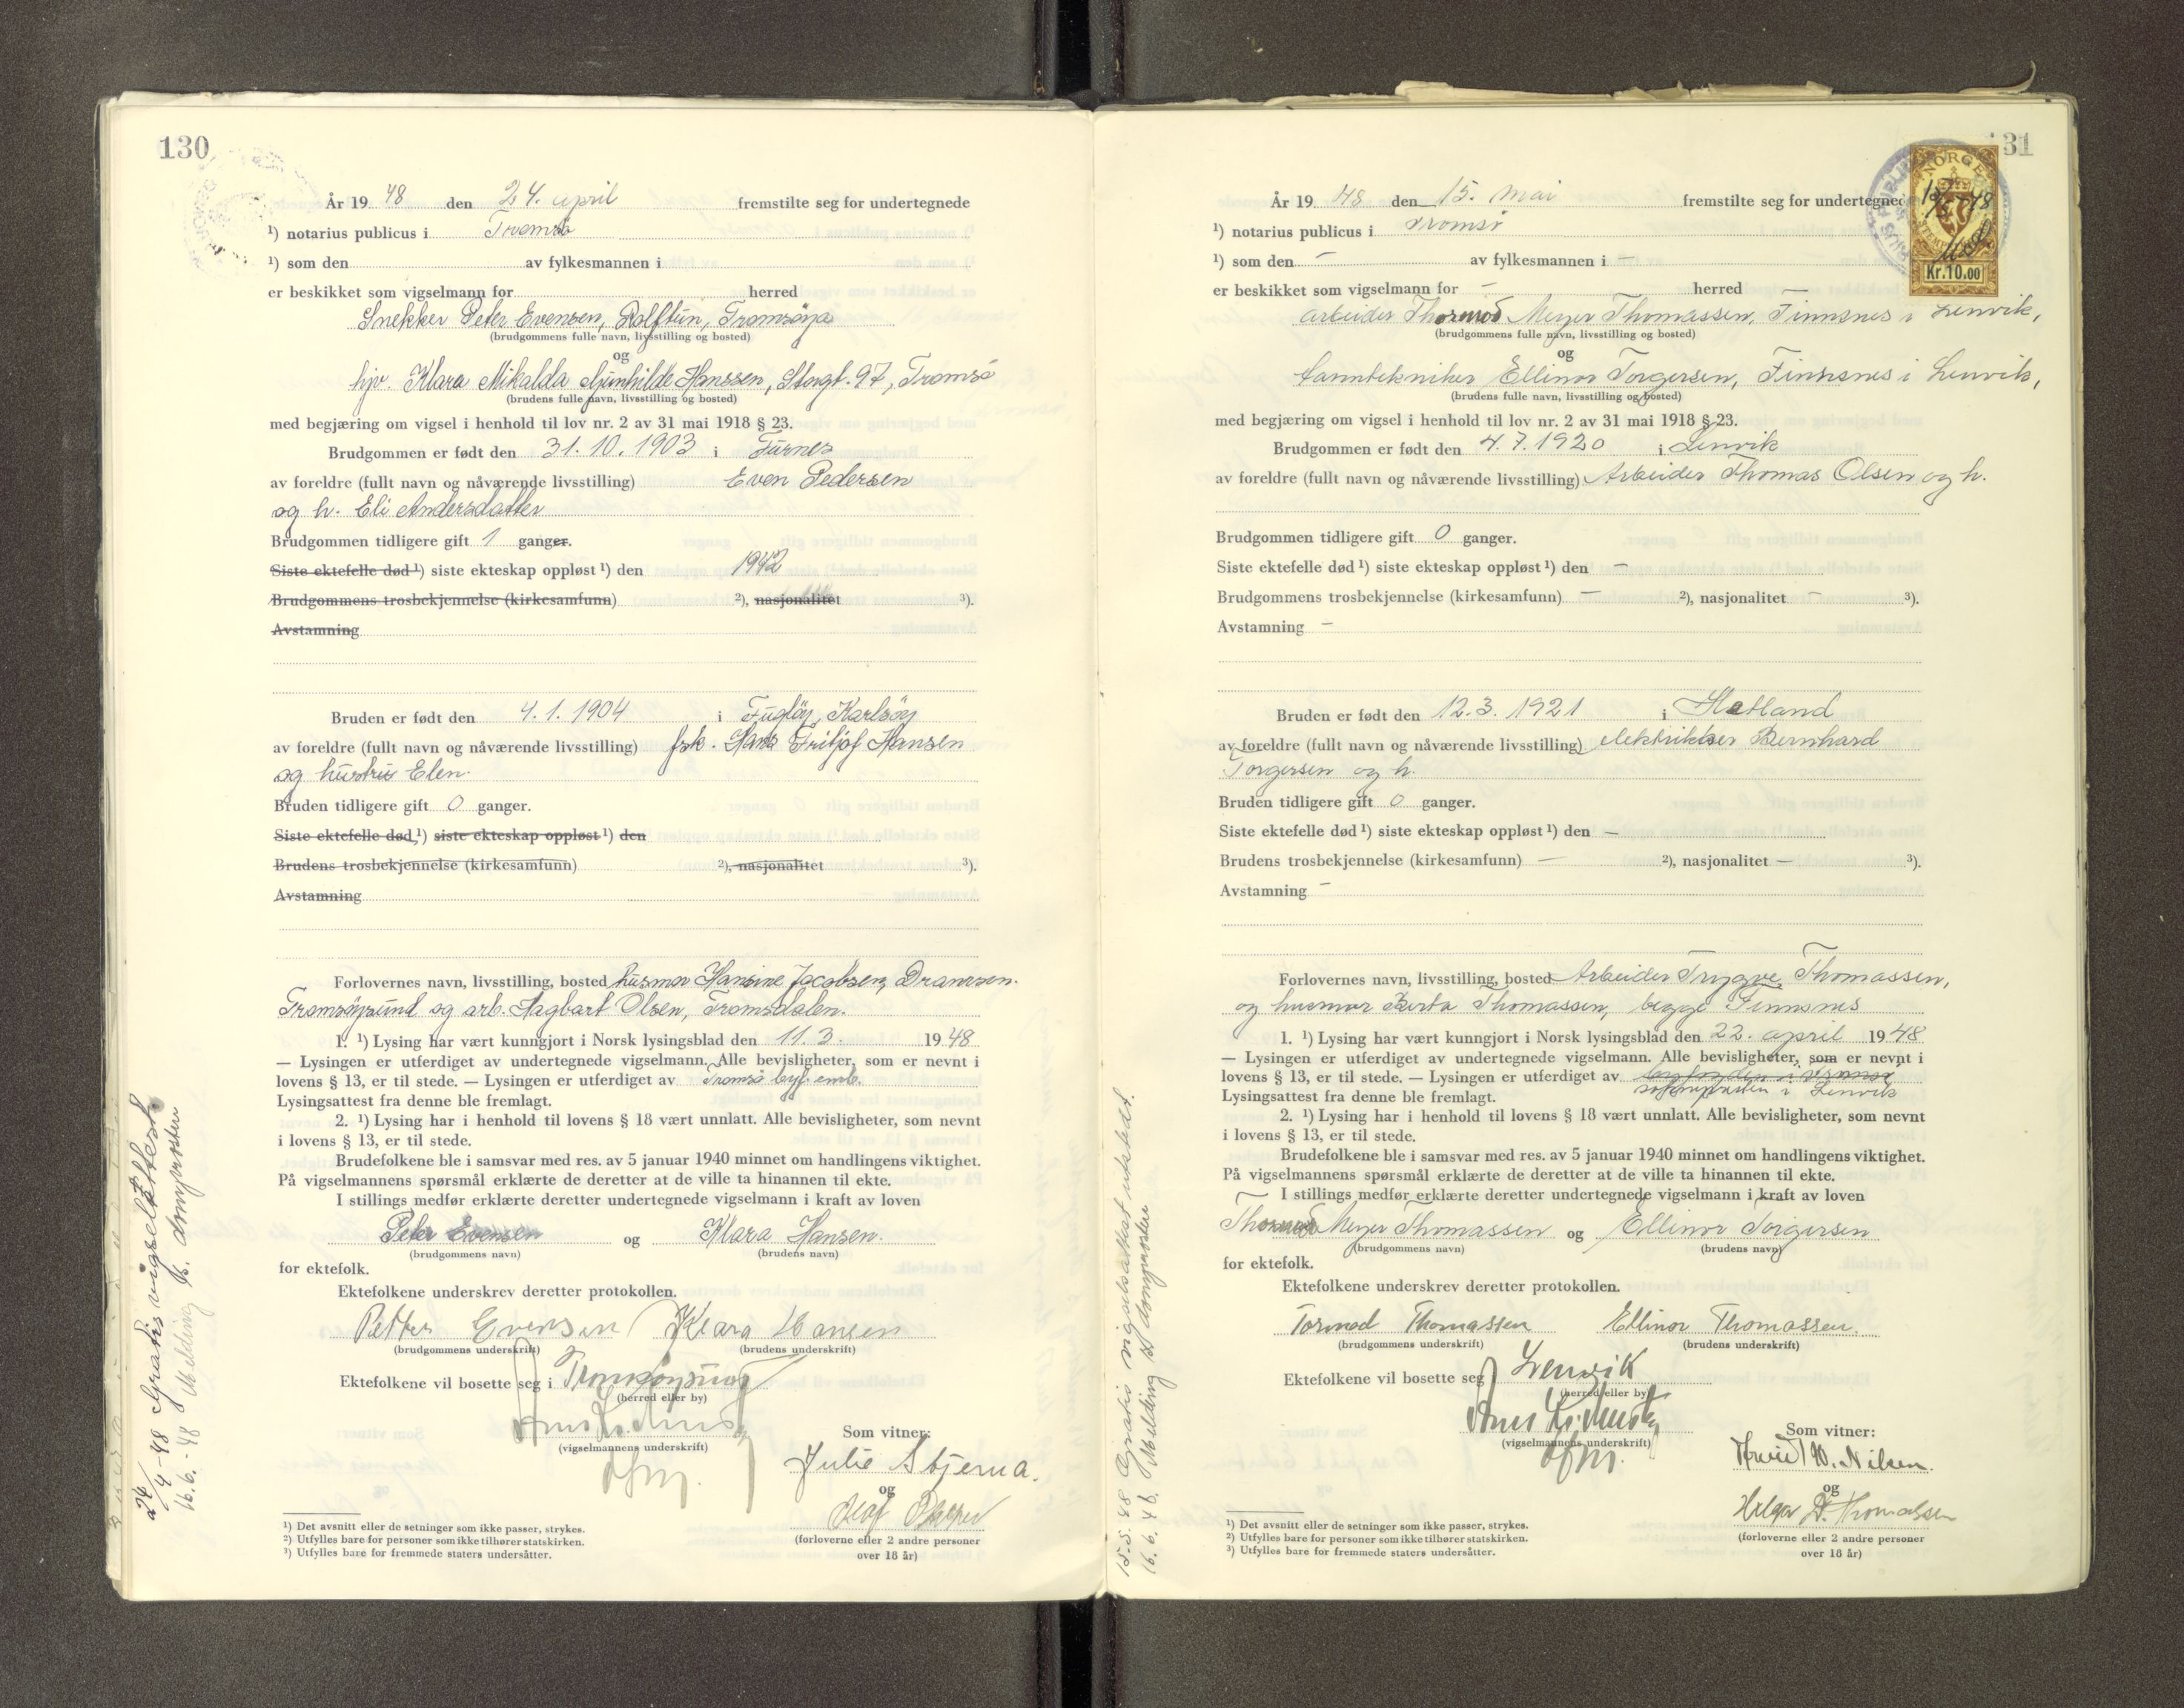 130
År 19 48 den 24. april fremstilte seg for undertegnede
¹) notarius publicus i Tromsø
¹) som den av fylkesmannen i
er beskikket som vigselmann for herred
Snekker Peter Evensen, Rolftun, Tromsøya
(brudgommens fulle navn, livsstilling og bosted)
og
hjv. Klara Mikalda Gunhilde Hanssen, Storgt. 97, Tromsø
(brudens fulle navn, livsstilling og bosted)
med begjæring om vigsel i henhold til lov nr. 2 av 31 mai 1918 § 23.
Brudgommen er født den 31. 10. 1903 i Furnes
av foreldre (fullt navn og nåværende livsstilling) Even Pedersen
og h. Eli Andersdatter
Brudgommen tidligere gift 1 ganger.
Siste ektefelle død ¹) siste ekteskap oppløst ¹) den 1942
Brudgommens trosbekjennelse (kirkesamfunn) ²), nasjonalitet ³).
Avstamning
Bruden er født den 4. 1. 1904 i Fugløy, Karlsøy
av foreldre (fullt navn og nåværende livsstilling) fsk. Hans Fritjof Hansen
og hustru Elen.
Bruden tidligere gift 0 ganger.
Siste ektefelle død ¹) siste ekteskap oppløst ¹) den
Brudens trosbekjennelse (kirkesamfunn) ²), nasjonalitet ³).
Avstamning
Forlovernes navn, livsstilling, bosted husmor Hansine Jacobsen,
Tromsøysund og arb. Hagbart Olsen, Tromsdalen.
1. ¹) Lysing har vært kunngjort i Norsk lysingsblad den 11. 3. 19 48
— Lysingen er utferdiget av undertegnede vigselmann. Alle bevisligheter, som er nevnt i
lovens § 13, er til stede. — Lysingen er utferdiget av Tromsø byf. emb.
Lysingsattest fra denne ble fremlagt.
2. ¹) Lysing har i henhold til lovens § 18 vært unnlatt. Alle bevisligheter, som nevnt
i lovens § 13, er til stede.
Brudefolkene ble i samsvar med res. av 5 januar 1940 minnet om handlingens viktighet.
På vigselmannens spørsmål erklærte de deretter at de ville ta hinannen til ekte.
I stillings medfør erklærte deretter undertegnede vigselmann i kraft av loven
Peter Evensen og Klara Hansen.
(brudgommens navn) (brudens navn)
for ektefolk.
Ektefolkene underskrev deretter protokollen.
Petter Evensen Klara Hansen
(brudgommens underskrift) (brudens underskrift)
Ektefolkene vil bosette seg i Tromsøysund
(herred eller by)
Som vitner:
(vigselmannens underskrift)
Julie Stjerna.
og
Olaf
(forloverne eller 2 andre personer
over 18 år)
¹) Det avsnitt eller de setninger som ikke passer, strykes.
²) Utfylles bare for personer som ikke tilhører statskirken.
³) Utfylles bare for fremmede staters undersåtter.
24/4-48 Gratis vigselattest
16.6.-48 Melding
31
NORGE
Kr.10.00
År 19 48 den 15. mai fremstilte seg for undertegnede
¹) notarius publicus i Tromsø
¹) som den – av fylkesmannen i –
er beskikket som vigselmann for – herred
arbeider Thormod Meyer Thomassen, Finnsnes i Lenvik,
(brudgommens fulle navn, livsstilling og bosted)
og
tanntekniker Ellinor Torgersen, Finnsnes i Lenvik,
(brudens fulle navn, livsstilling og bosted)
med begjæring om vigsel i henhold til lov nr. 2 av 31 mai 1918 § 23.
Brudgommen er født den 4. 7. 1920 i Lenvik
av foreldre (fullt navn og nåværende livsstilling) Arbeider Thomas Olsen og h.
Brudgommen tidligere gift 0 ganger.
Siste ektefelle død ¹) siste ekteskap oppløst ¹) den –
Brudgommens trosbekjennelse (kirkesamfunn) – ²), nasjonalitet – ³).
Avstamning –
Bruden er født den 12. 3. 1921 i Hetland
av foreldre (fullt navn og nåværende livsstilling) elektriker Bernhard
Torgersen og h.
Bruden tidligere gift 0 ganger.
Siste ektefelle død ¹) siste ekteskap oppløst ¹) den –
Brudens trosbekjennelse (kirkesamfunn) – ²), nasjonalitet – ³).
Avstamning –
Forlovernes navn, livsstilling, bosted Arbeider Trygve Thomassen,
og husmor Berta Thomassen, begge Finnsnes
1. ¹) Lysing har vært kunngjort i Norsk lysingsblad den 22. april 19 48
— Lysingen er utferdiget av undertegnede vigselmann. Alle bevisligheter, som er nevnt i
lovens § 13, er til stede. — Lysingen er utferdiget av byfogden i Tromsø
sognepresten i Lenvik
Lysingsattest fra denne ble fremlagt.
2. ¹) Lysing har i henhold til lovens § 18 vært unnlatt. Alle bevisligheter, som nevnt
i lovens § 13, er til stede.
Brudefolkene ble i samsvar med res. av 5 januar 1940 minnet om handlingens viktighet.
På vigselmannens spørsmål erklærte de deretter at de ville ta hinannen til ekte.
I stillings medfør erklærte deretter undertegnede vigselmann i kraft av loven
Thormod Meyer Thomassen og Ellinor Torgersen
(brudgommens navn) (brudens navn)
for ektefolk.
Ektefolkene underskrev deretter protokollen.
Tormod Thomassen Ellinor Thomassen.
(brudgommens underskrift) (brudens underskrift)
Ektefolkene vil bosette seg i Lenvik
(herred eller by)
Som vitner:
(vigselmannens underskrift)
Nilsen.
og
Helga Thomassen
(forloverne eller 2 andre personer
over 18 år)
¹) Det avsnitt eller de setninger som ikke passer, strykes.
²) Utfylles bare for personer som ikke tilhører statskirken.
³) Utfylles bare for fremmede staters undersåtter.
15.5.48 Gratis vigselsattest utstedt.
16.6.48 Melding